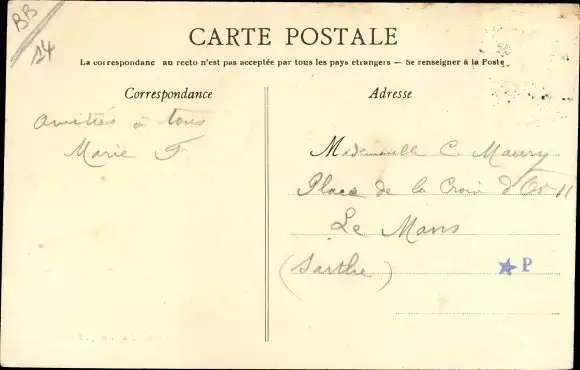 BB
14
CARTE POSTALE
La correspondance au recto n'est pas acceptée par tous les pays etrangers — Se renseigner à la Poste
Correspondance
Amitiés à tous
Marie F
Adresse
Mademoiselle C. Maury
Place de la Croix d'Or 11
Le Mans
(Sarthe)
★ P